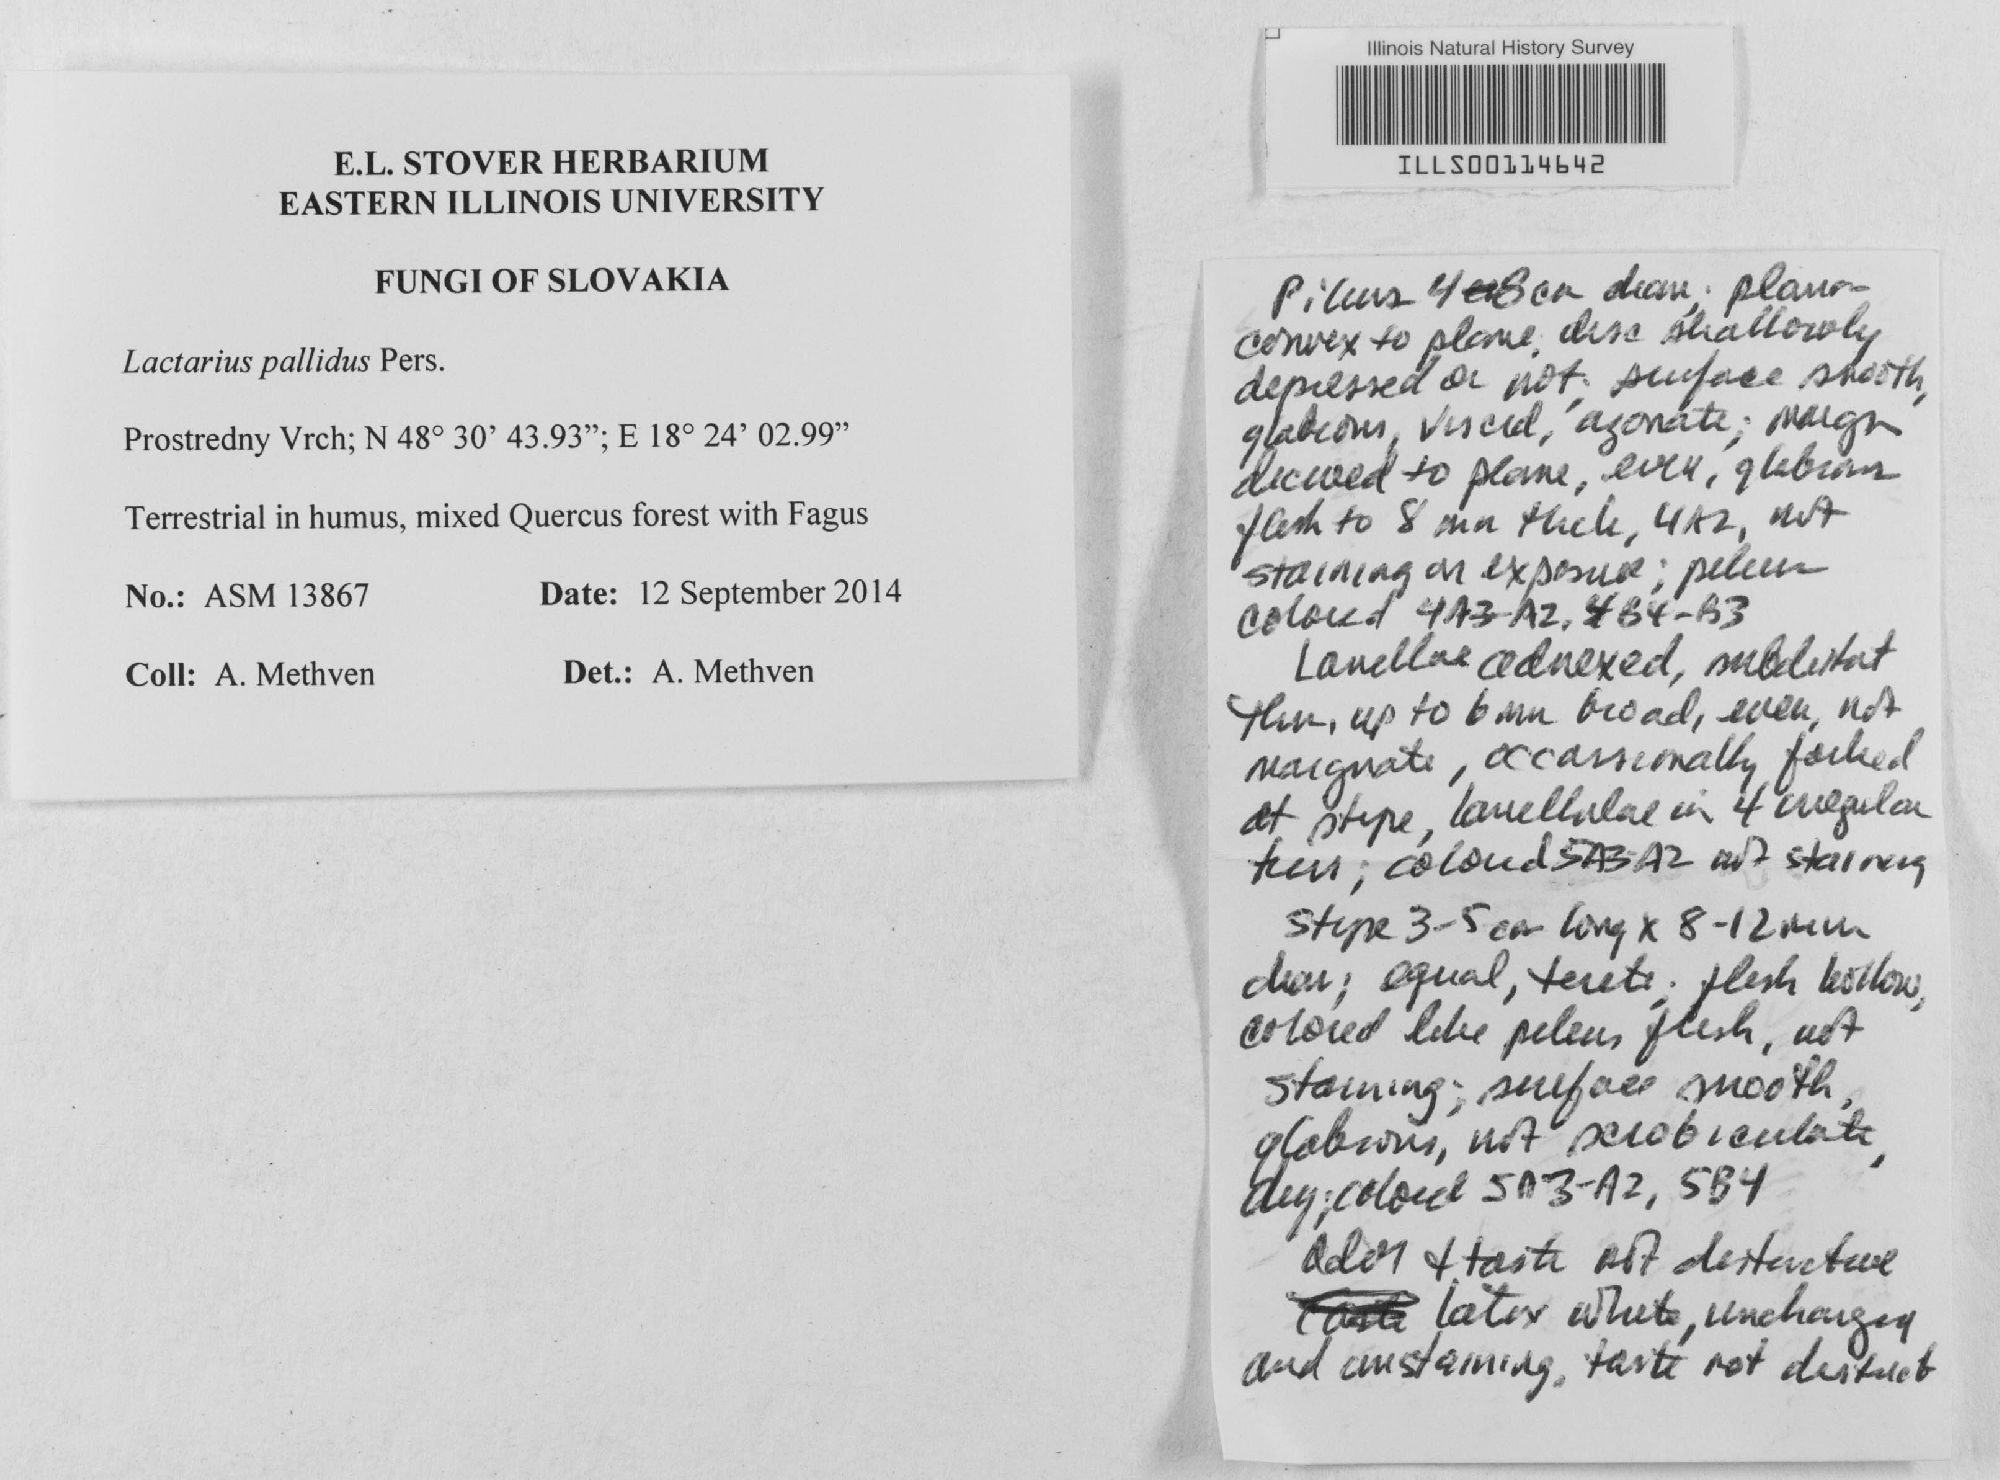 E.L. STOVER HERBARIUM
EASTERN ILLINOIS UNIVERSITY
FUNGI OF SLOVAKIA
Lactarius pallidus Pers.
Prostredny Vrch; N 48° 30’ 43.93”; E 18° 24’ 02.99”
Terrestrial in humus, mixed Quercus forest with Fagus
No.: ASM 13867 Date: 12 September 2014
Coll: A. Methven Det.: A. Methven
Illinois Natural History Survey
ILLS00114642
Pileus 4-8 cm diam; plano-
convex to plane, disc shallowly
depressed or not; surface smooth,
glabrous, viscid, azonate; margin
decurved to plane, even, glabrous
flesh to 8 mm thick, 4A2, not
staining on exposure; pileus
colored 4A3-A2, 4B4-B3
Lamellae adnexed, subdistant
thin, up to 6 mm broad, even, not
marginate, occassionally forked
at stipe, lamellulae in 4 irregular
tiers; colored 5A3-A2 not staining
Stipe 3-5 cm long x 8-12 mm
diam; equal, terete; flesh hollow,
colored like pileus flesh, not
staining; surface smooth,
glabrous, not scrobiculate,
dry; colored 5A3-A2, 5B4
Odor & taste not distinctive
latex white, unchanging
and unstaining, taste not distinct